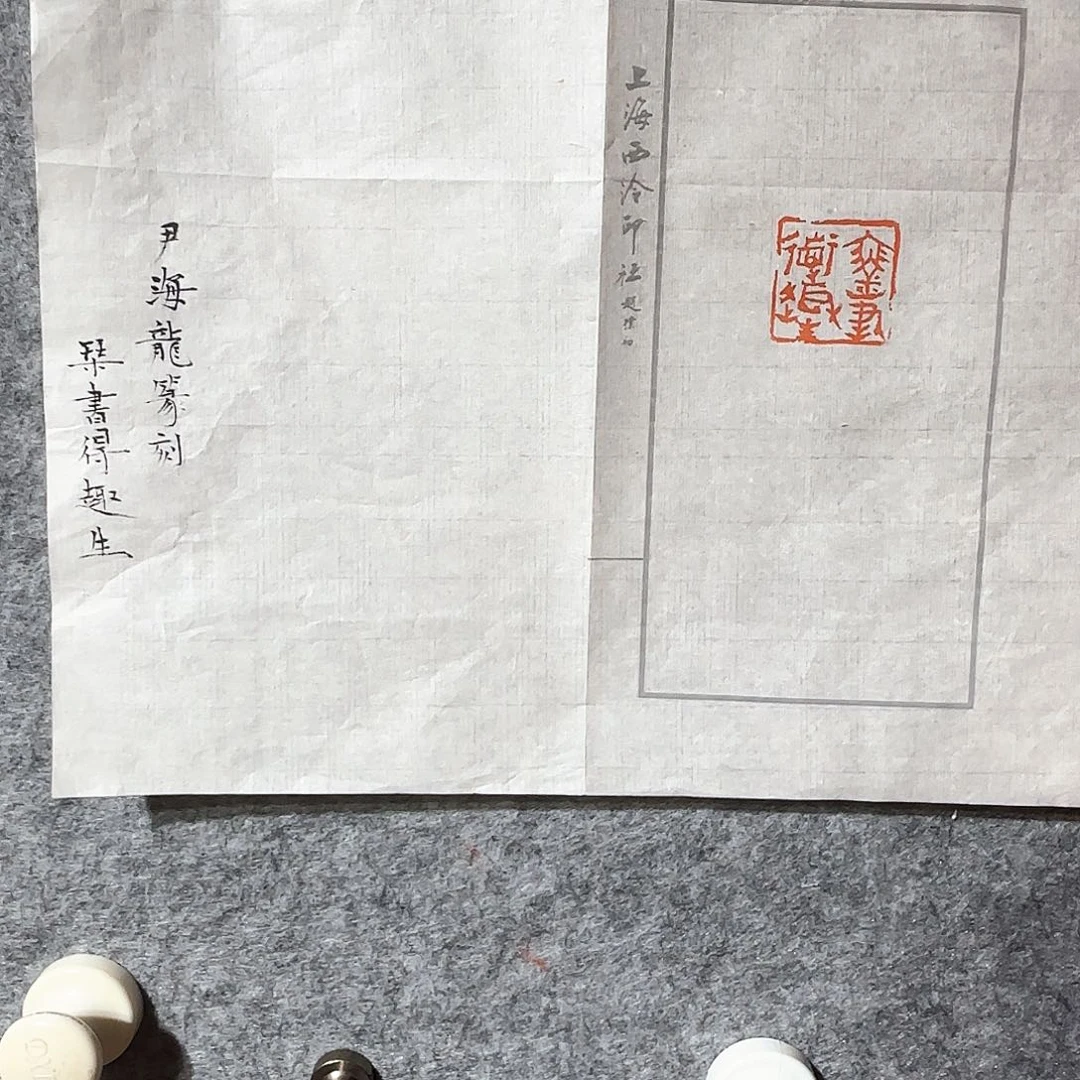 上海西泠印社
尹海龍篆刻
琹書得趣生